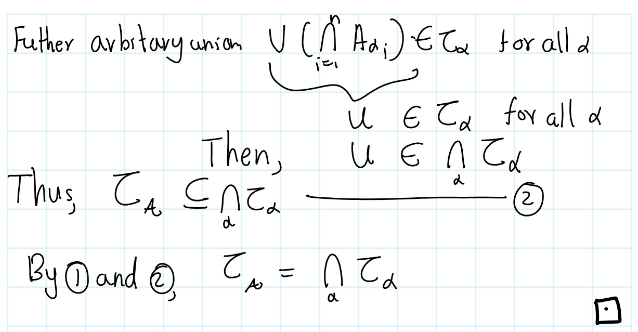 Futher arbitary union ∪ (⋂ⁿᵢ₌₁ A_{αᵢ}) ∈ τ_α for all α
U ∈ τ_α for all α
Then, U ∈ ⋂_α τ_α
Thus, τ_A ⊆ ⋂_α τ_α ——— ②
By ① and ②, τ_A = ⋂_α τ_α